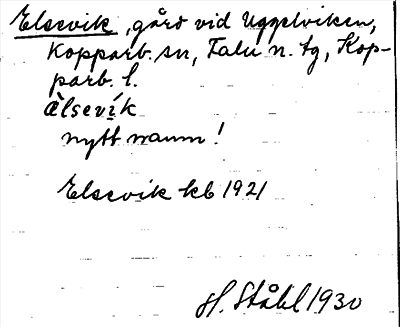 Elsevik, gård vid Uggelviken,
Kopparb. sn, Falu n. tg, Kop-
parb. l.
älsevík
nytt namn!
Elsevik kb 1921
H. Ståhl 1930